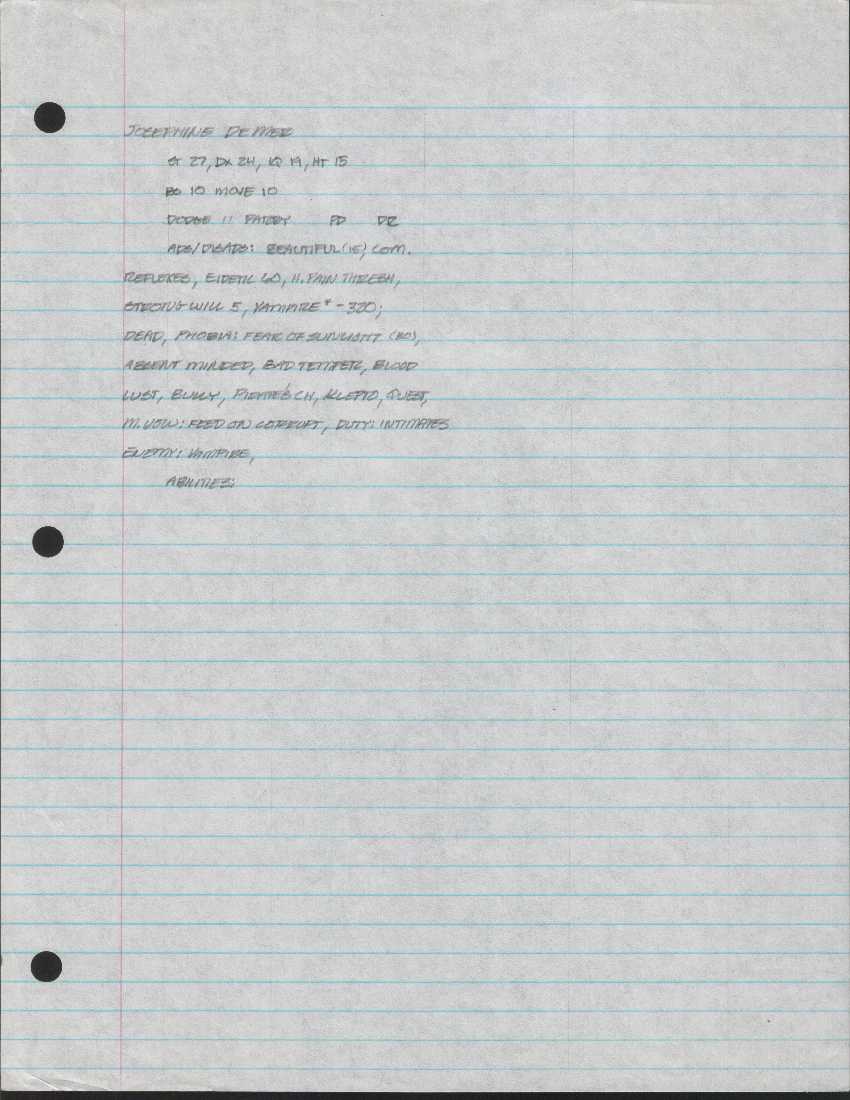 JOSEPHINE DEMER
ST 27, DX 24, IQ 19, HT 15
BS 10 MOVE 10
DODGE 11 PARRY PD DR
ADS/DISADS: BEAUTIFUL (15), COM.
REFLEXES, EIDETIC 60, H. PAIN THRESH,
STRONG WILL 5, VAMPIRE * -320;
DEAD, PHOBIA: FEAR OF SUNLIGHT
ABSENT MINDED, BAD TEMPER, BLOOD
LUST, BULLY, PIRATE'S CH, KLEPTO, QUEST,
M. VOW: FEED ON CORRUPT, DUTY: INTIMATES
ENEMY: VAMPIRE,
ABILITIES: